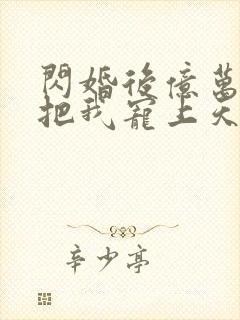 閃婚後億萬
把我寵上天
辛少亭